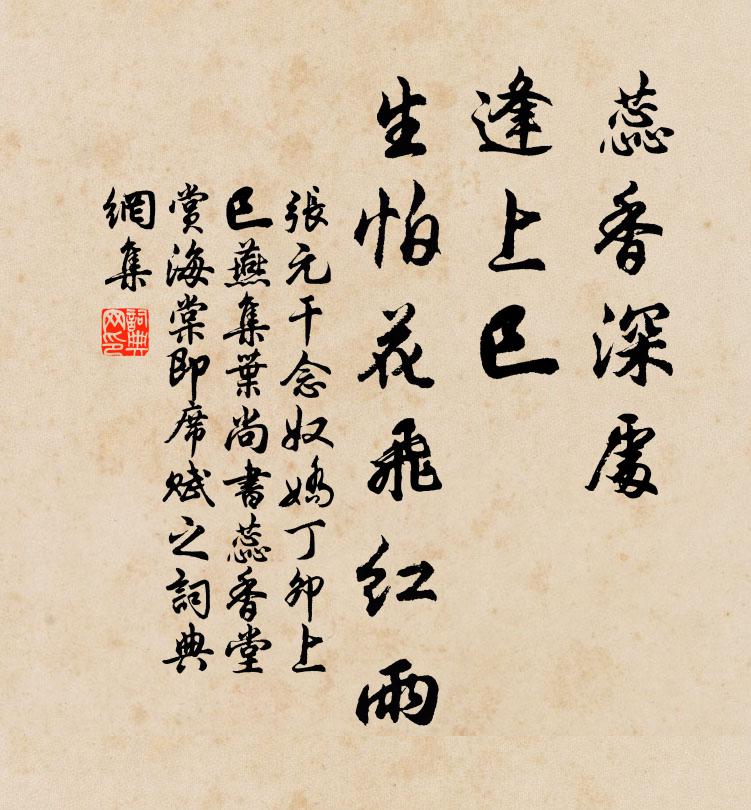 蕊香深處
逢上巳
生怕花飛紅雨
張元干念奴嬌丁卯上
巳燕集葉尚書蕊香堂
賞海棠即席賦之詞典
網集
詞典網印